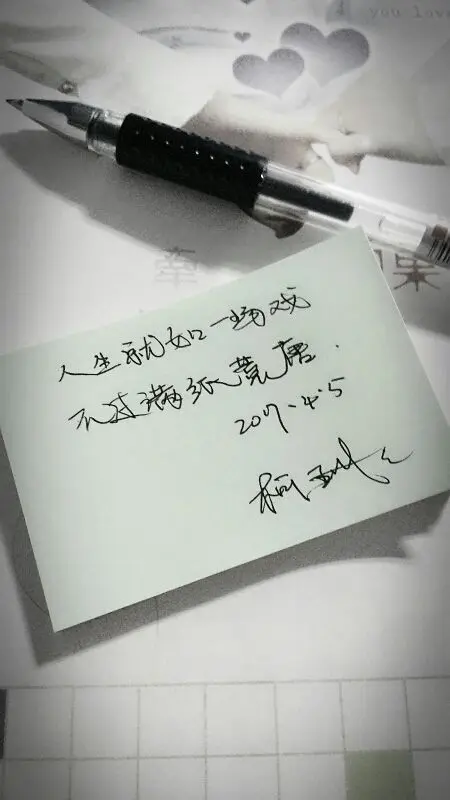 you love
人生就如一场戏
不过满纸荒唐.
2017.4.5